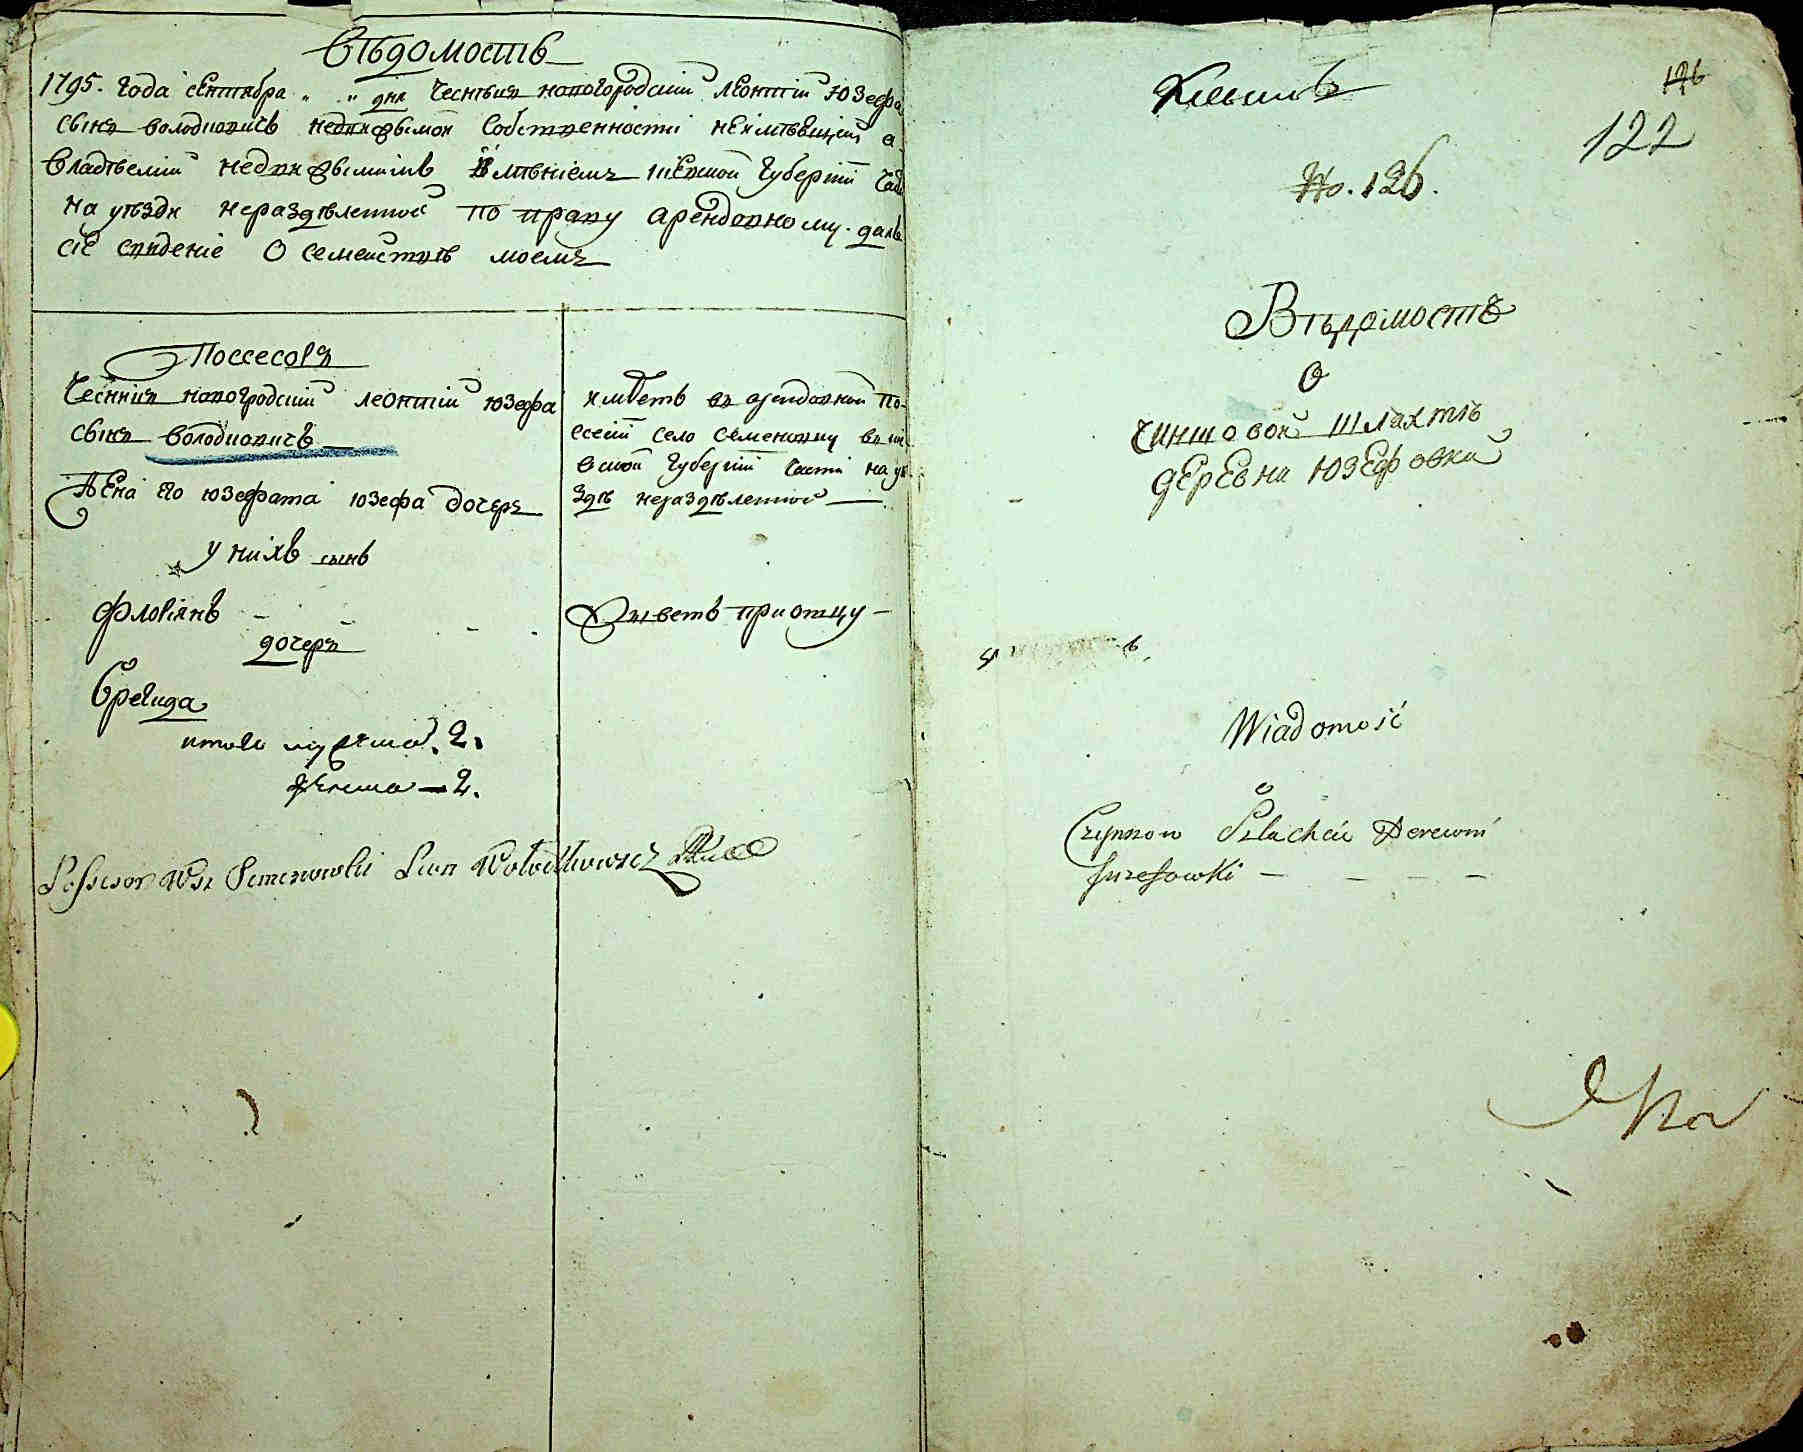 Вѣдомость
1795. года сентября „ „ дня Чесникъ новогородский леонтій Юзефа
сынъ володковичь недвижимой собственности неимѣющий а
владѣемии недвижимимъ имѣніемъ кіевской Губерніи части
на уѣзди нераздѣленной по праву арендовному. далъ
сіе свидение О семействѣ моемъ
Поссесоръ
Чесникъ новогродский леонтій юзефа
сынъ володковичъ
жена его юзефата юзефа дочеръ
у нихъ сынъ
флоріянъ
дочеръ
бригида
итого мужеска. 2.
женска — 2.
имѣетъ въ арендовной по-
сесіи село семеновку въ киевской
Губерніи части на уѣ-
здѣ нераздѣленной
живетъ при отцу —
Possessor Wsi Semenowki Leon Wołodkowicz
126
122
No. 126.
Вѣдомостъ
О
чиншовой шляхтѣ
деревни юзефовки
Wiadomość
o
Czynszow Szlachcie Derewni
Juzefowki — — — —